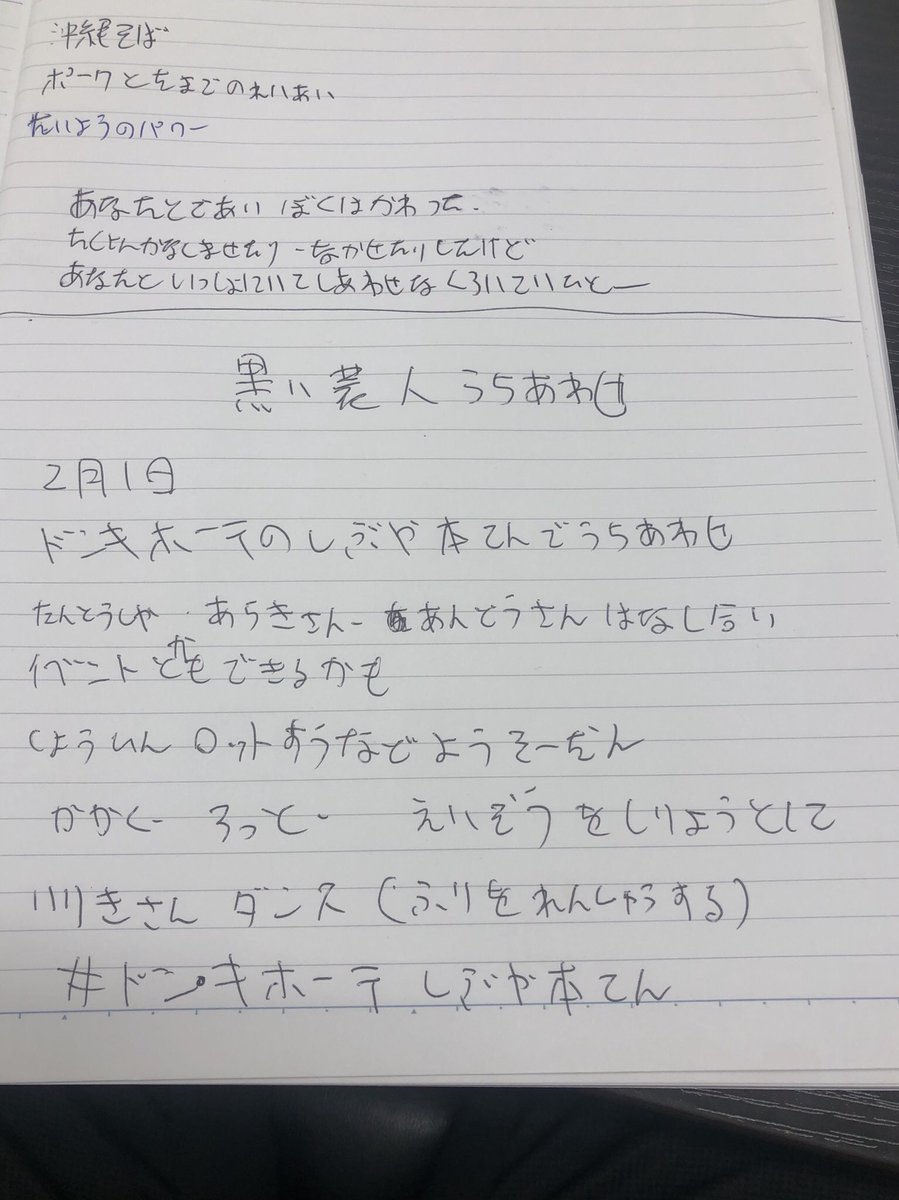 沖縄そば
ポークとたまごのれいあい
たいようのパワー
あなたとであい ぼくはかわった.
たくさんかなしませたり-なかせたりしたけど
あなたといっしょにいてしあわせな くろいこいびとー
黒い芸人うちあわせ
2月1日
ドンキホーテのしぶや本てんでうちあわせ
たんとうしゃ・あらきさん-あんどうさん はなし合い
イベントとかもできるかも
しょうひん ロットすうなどようそーだん
かかく- ろっと- えいぞうをしりょうとして
川りきさん ダンス(ふりをれんしゅうする)
#ドンキホーテ しぶや本てん